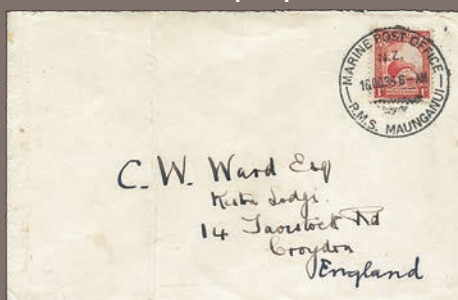 MARINE POST OFFICE
N.Z.
R.M.S. MAUNGANUI
C. W. Ward Esq
Lodge
14 Tavistock Rd
Croydon
England